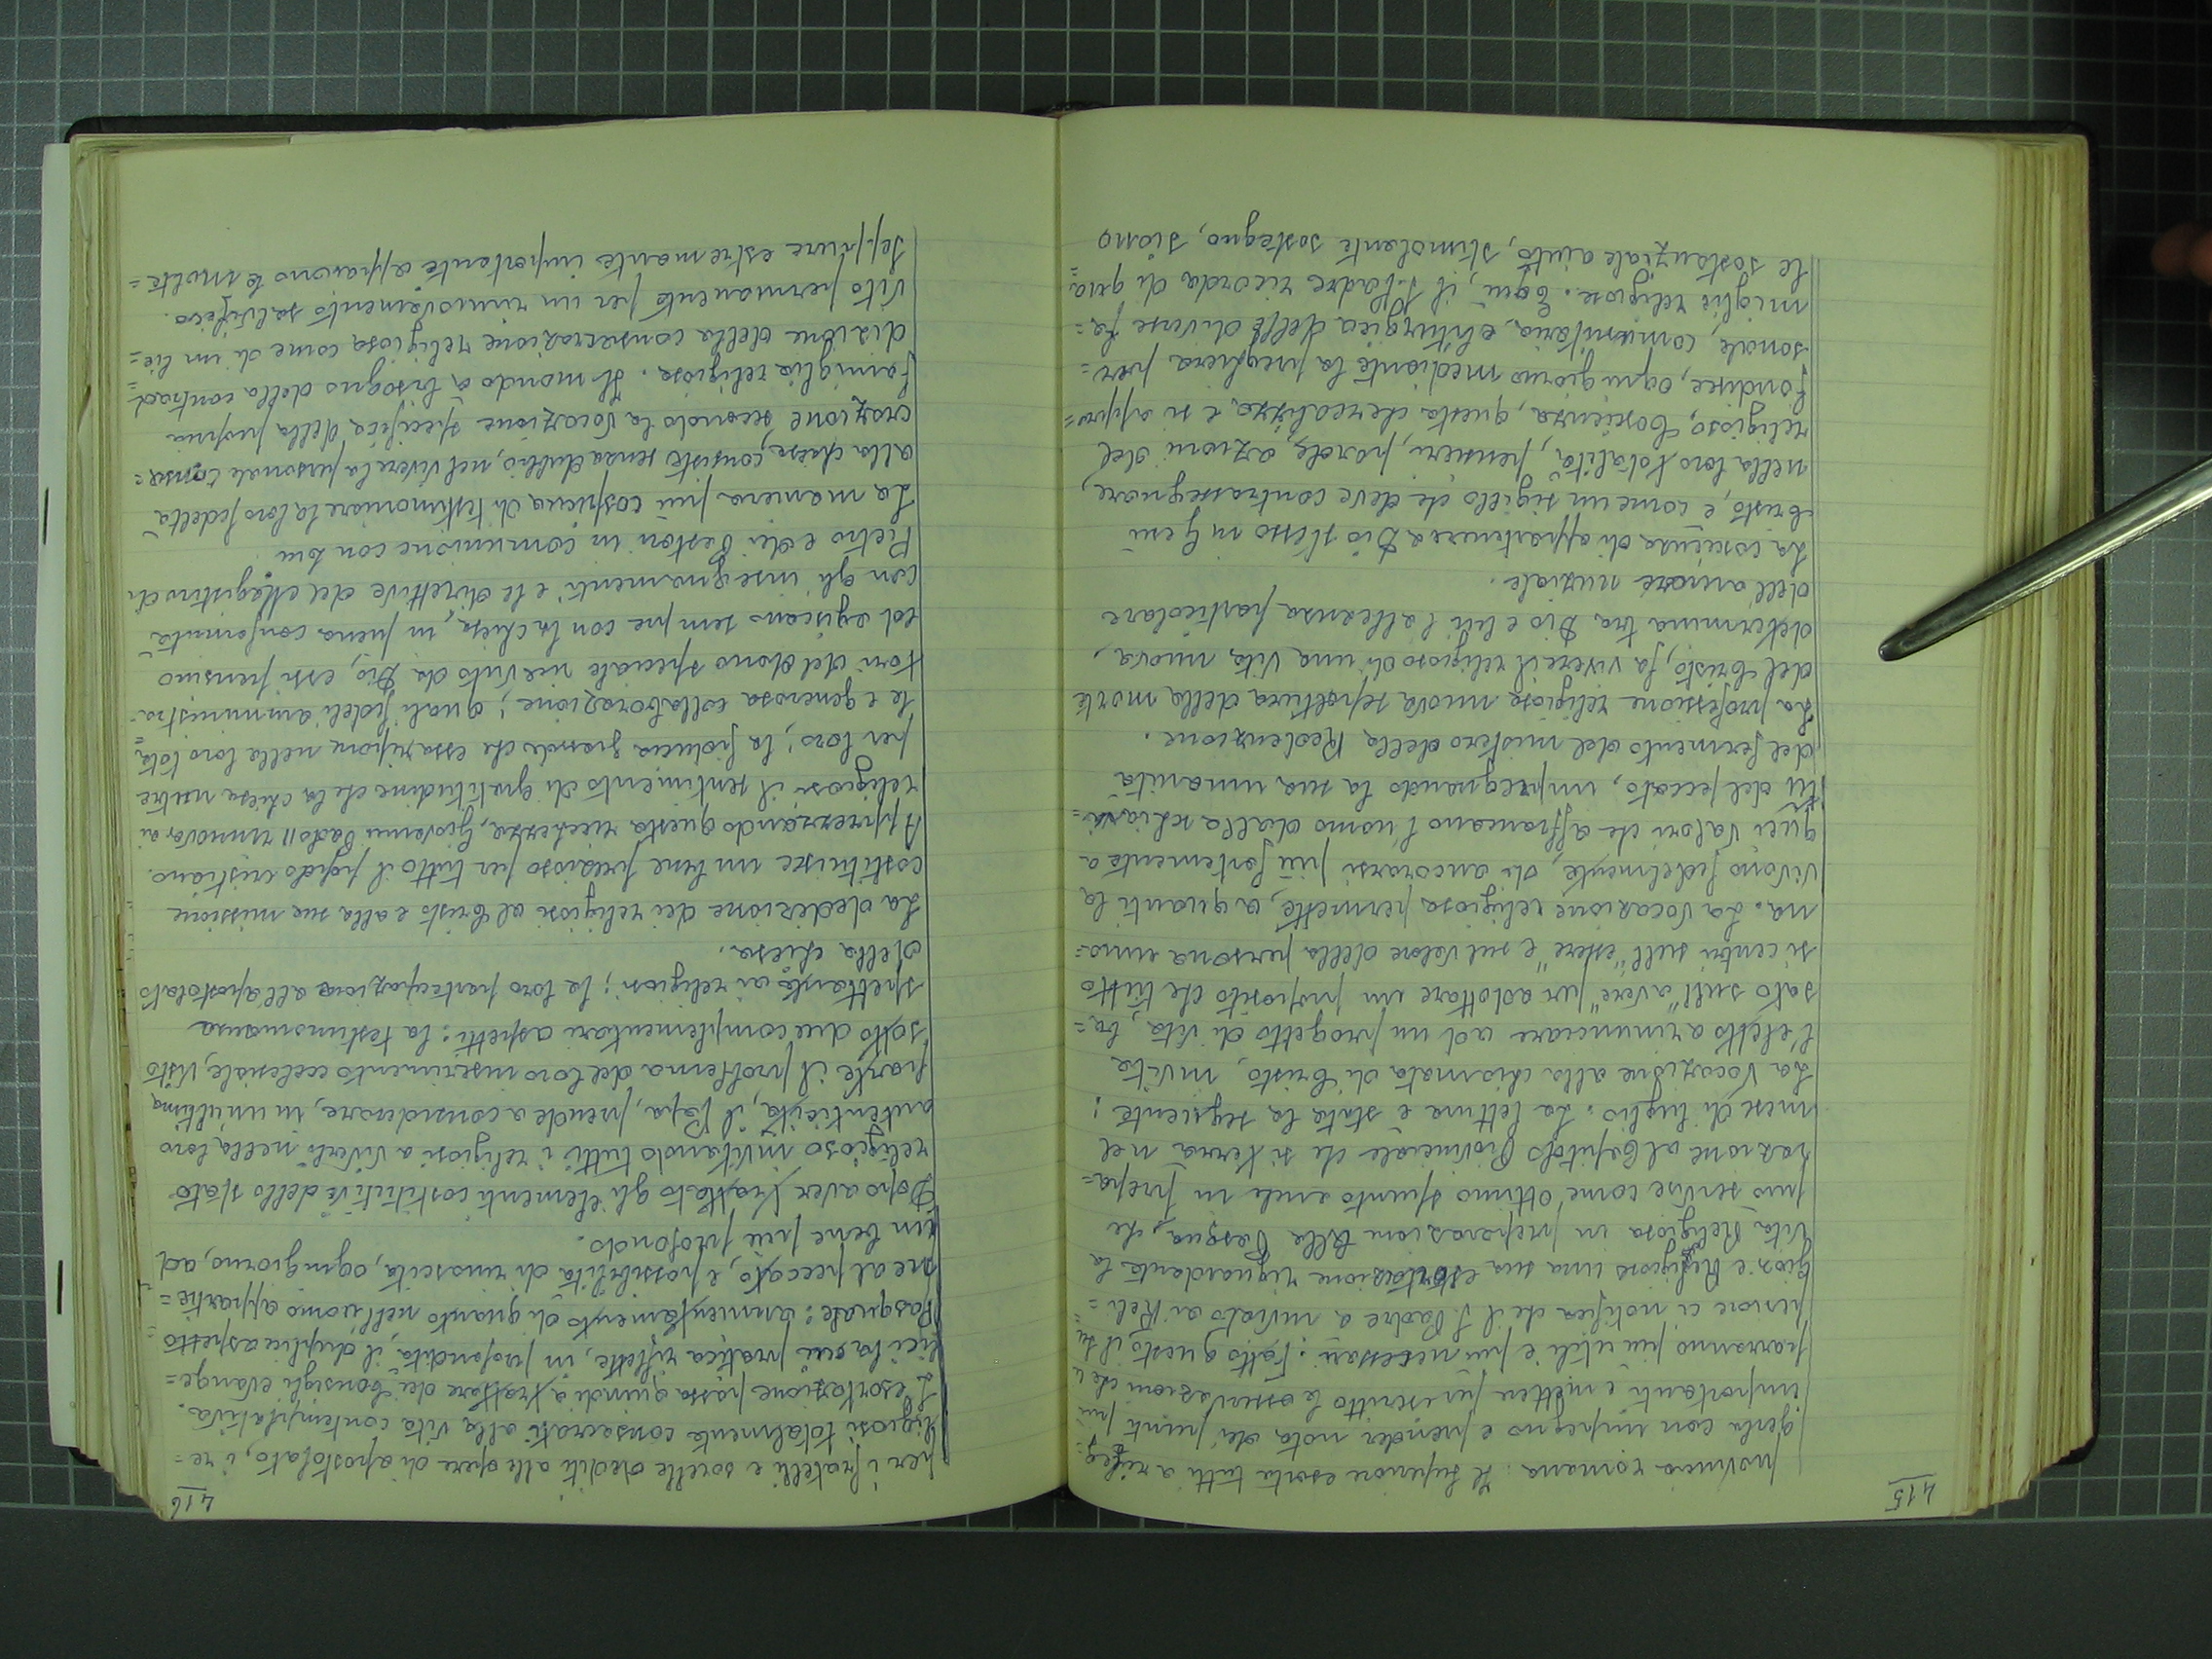 415
provincia romana. Il Superiore esorta tutti a rileg=
gerla con impegno e prender nota dei punti più
importanti e metter per iscritto le osservazioni che ci
parranno più utili e più necessari. Fatto questo il Su=
periore ci notifica che il S. Padre a inviato ai Reli=
giosi e Religiose una sua esortazione riguardante la
Vita Religiosa in preparazioni alla Pasqua, che
può servire come ottimo spunto anche in prepa=
razione al Capitolo Provinciale che si terrà nel
mese di luglio. La lettura è stata la seguente:
La Vocazione alla chiamata di Cristo, invita
l'eletto a rinunciare ad un progetto di vita, ba=
sato sull'"avere" per adottare un proposito che tutto
si centri sull'"essere" e sul valore della persona uma=
na. La vocazione religiosa permette, a quanti la
vivono fedelmente, di ancorarsi più fortemente a
quei valori che affrancano l'uomo dalla schiavi=
tù del peccato, impregnando la sua umanità
del fermento del mistero della Redenzione.
La professione religiosa nuova sepoltura della morte
del Cristo, fa vivere il religioso di una vita nuova,
determina tra Dio e lui l'alleanza particolare
dell'amore nuziale.
La coscienza di appartenere a Dio stesso in Gesù
Cristo, è come un sigillo che deve contrassegnare,
nella loro totalità, pensieri, parole, azioni del
religioso, Coscienza, questa, che realizza e si appro=
fondisce, ogni giorno mediante la preghiera per=
sonale, comunitaria, e liturgica delle diverse fa=
miglie religiose. Egni, il S. Padre ricorda di qua=
le sostanziale aiuto, stimolante sostegno, siano
416
per i fratelli e sorelle dediti alle opere di apostolato, i re=
ligiosi totalmente consecrati alla vita contemplativa.
L'esortazione passa quindi a trattare dei Consigli evange=
lici la cui pratica riflette, in profondità, il duplice aspetto
Pasquale: annientamento di quanto nell'uomo appartie=
ne al peccato, e possibilità di rinascita, ogni giorno, ad
un bene più profondo.
Dopo aver trattato gli elementi costitutivi dello stato
religioso invitando tutti i religiosi a viverli nella loro
autenticità, il Papa, prende a considerare, in un'ultima
parte il problema del loro inserimento ecclesiale, visto
sotto due complementari aspetti: la testimonianza
spettante ai religiosi; la loro partecipazione all'apostolato
della chiesa.
La dedizione dei religiosi al Cristo e alla sua missione
costituisce un bene prezioso per tutto il popolo cristiano.
Apprezzando questa ricchezza, Giovanni Paolo II rinnova ai
religiosi il sentimento di gratitudine che la chiesa nutre
per loro; la fiducia grande che essa ripone nella loro tota=
le e generosa collaborazione; quali fedeli amministra=
tori del dono speciale ricevuto da Dio, essi pensino
ed agiscano sempre con la chiesa, in piena conformità
con gli insegnamenti e le direttive del Magistero di
Pietro e dei Pastori in comunione con lui.
La maniera più cospicua di testimoniare la loro fedeltà
alla chiesa, consiste senza dubbio, nel vivere la personale consa=
crazione secondo la vocazione specifica della propria
famiglia religiosa. Il mondo à bisogno della contrad=
dizione della consacrazione religiosa come di un lie=
vito permanente per un rinnovamento salvifico.
Seppure estremante importante appaiono le molte=